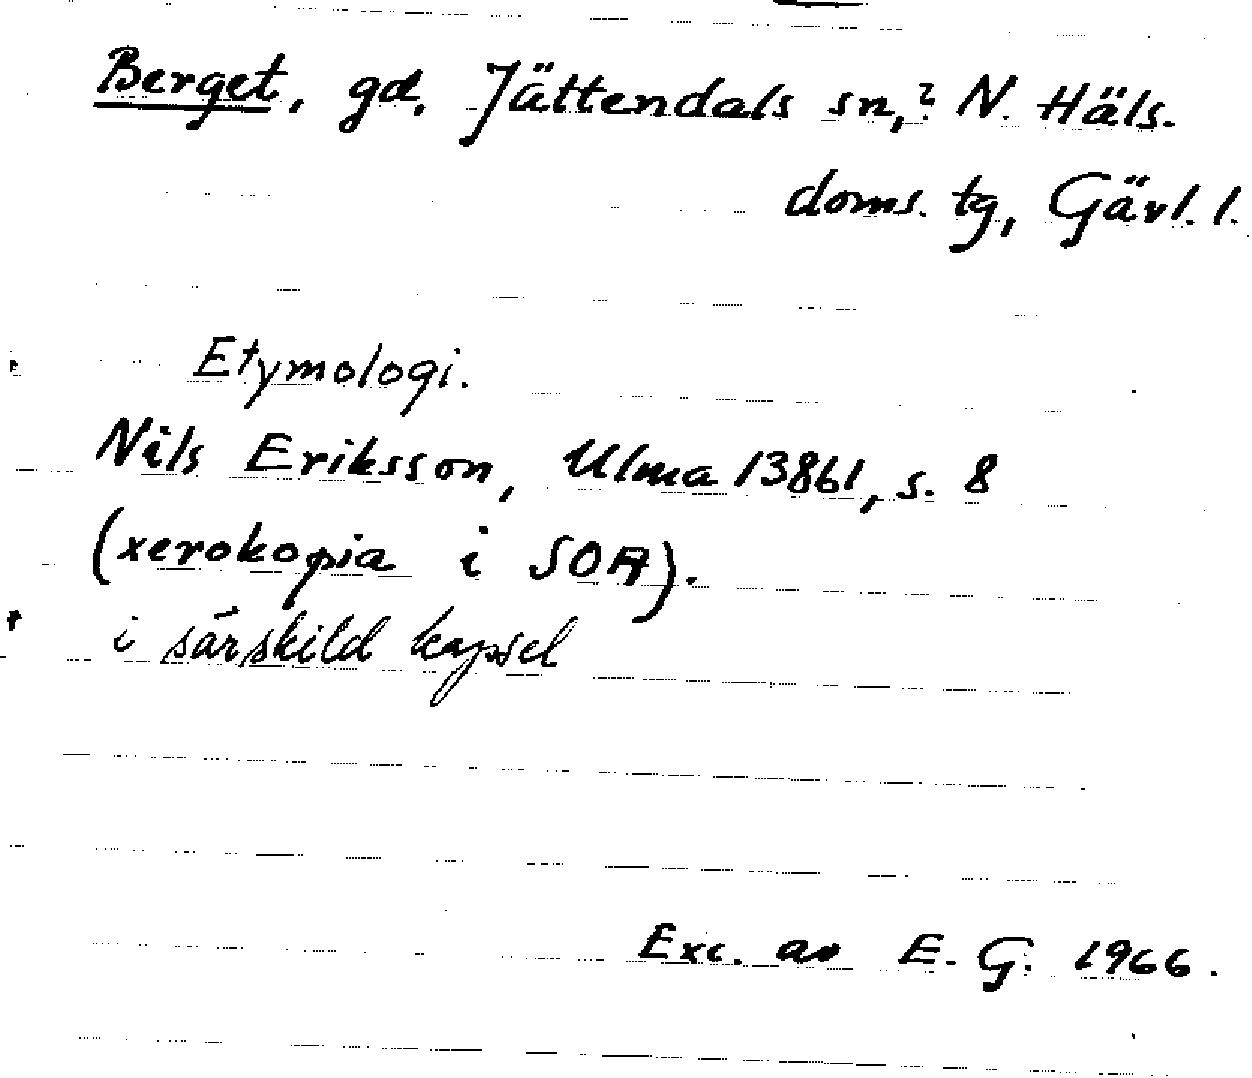 Berget, gd, Jättendals sn,? N. Häls.
doms. tg, Gävl. l.
Etymologi.
Nils Eriksson, Ulma 13861, s. 8
(xerokopia i SOA).
i särskild kapsel
Exc. av E. G. 1966.